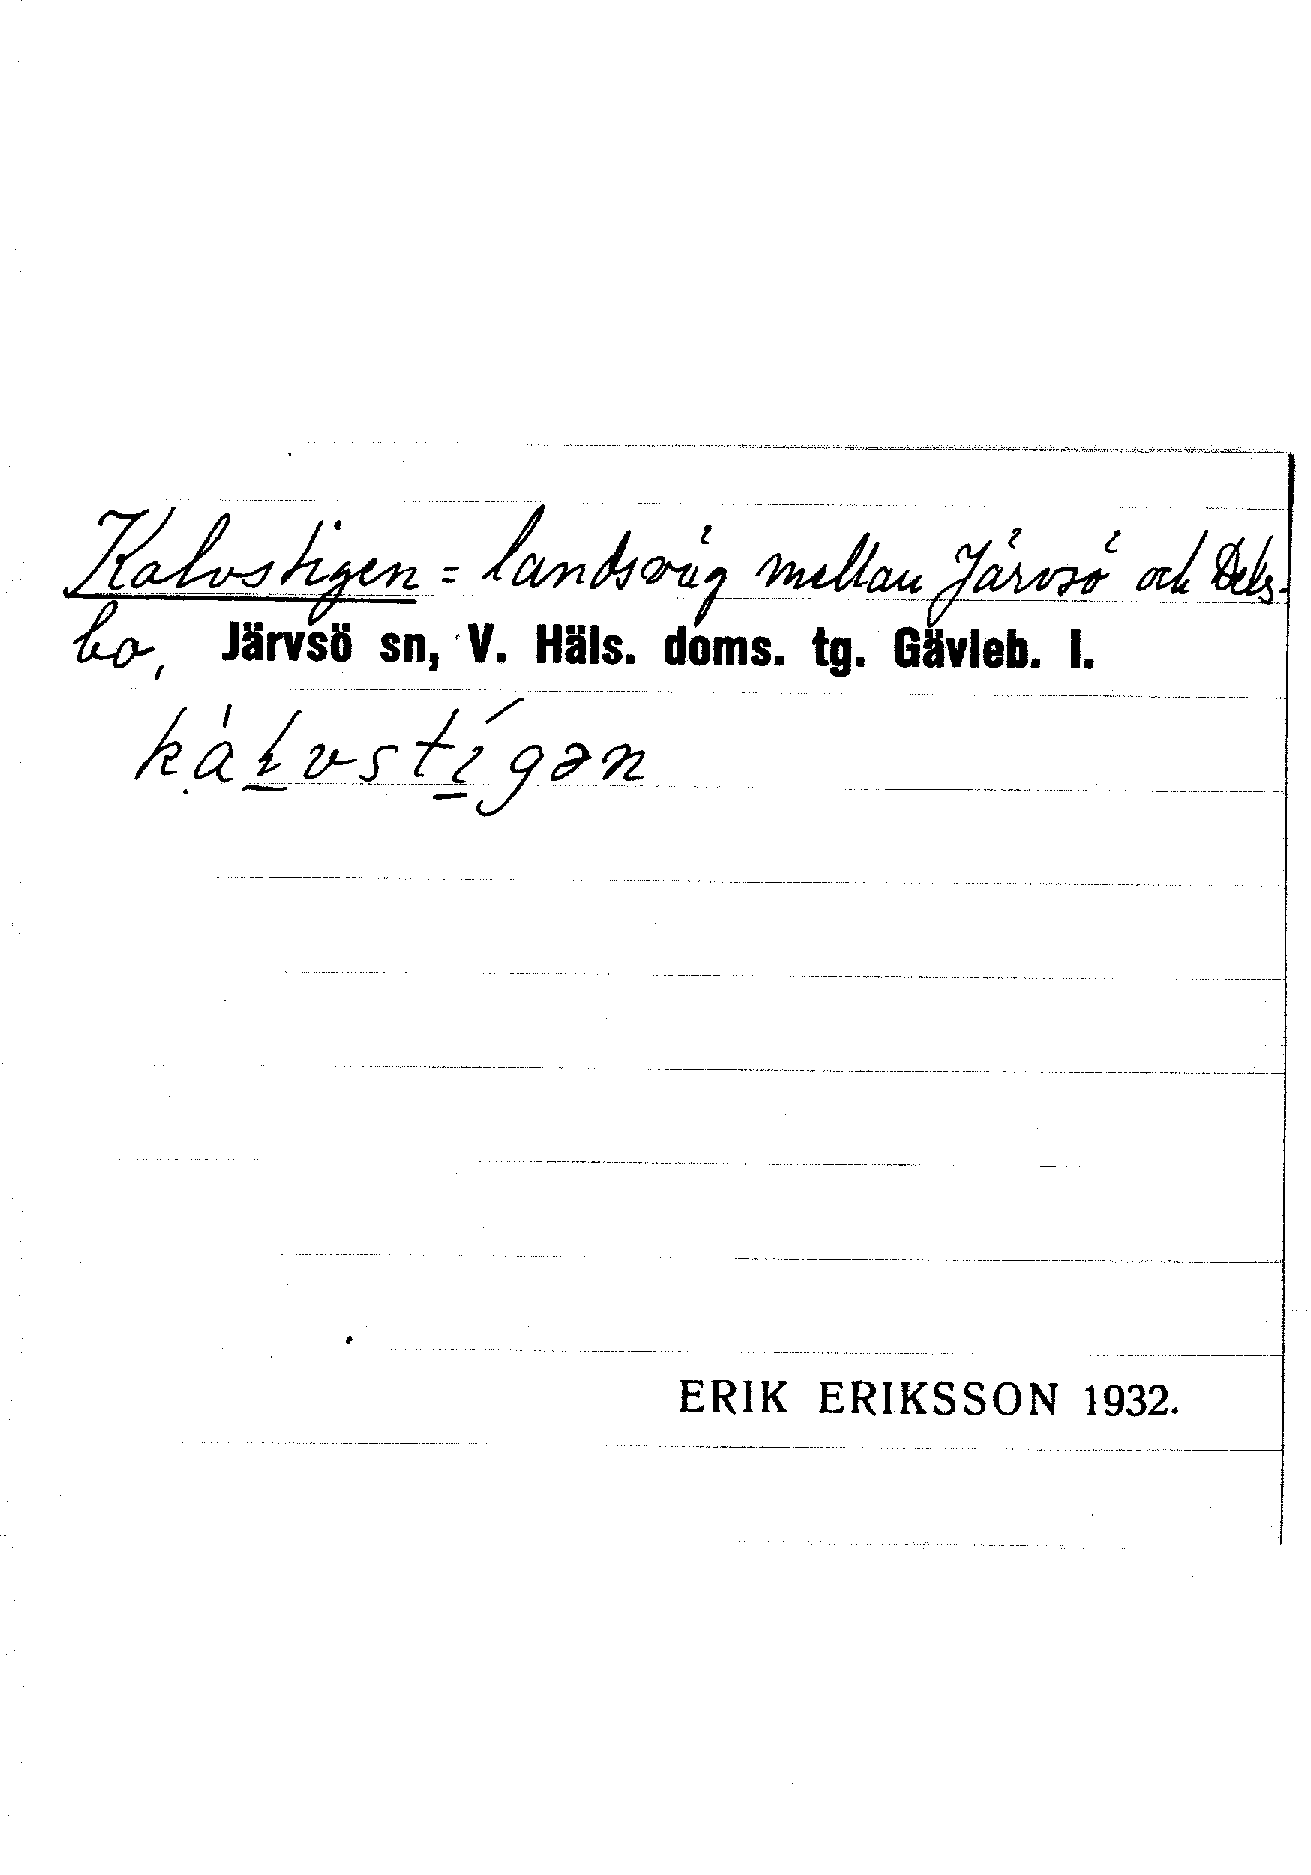 Kalvstigen = landsväg mellan Järvsö och Dels-
bo, Järvsö sn, V. Häls. doms. tg. Gävleb. l.
kàlvstígən
ERIK ERIKSSON 1932.